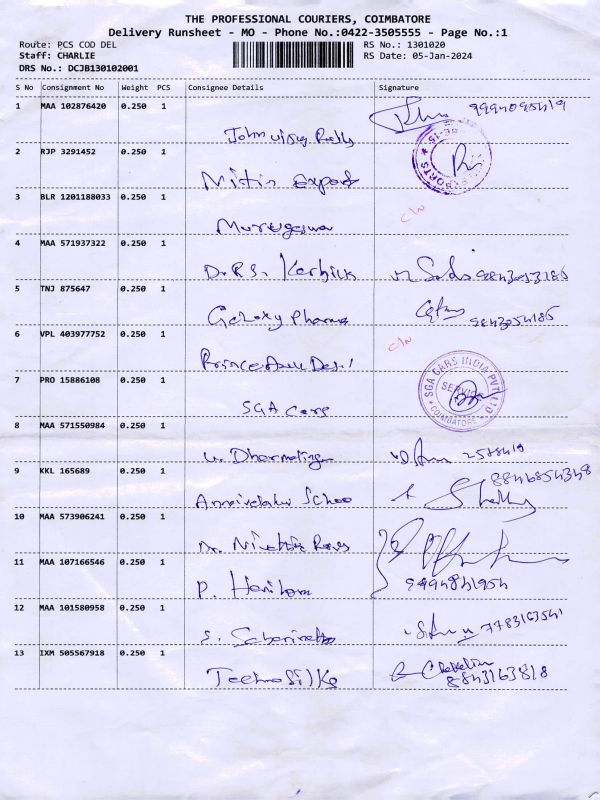 THE PROFESSIONAL COURIERS, COIMBATORE
Delivery Runsheet - MO - Phone No.:0422-3505555 - Page No.:1
Route: PCS COD DEL RS No.: 1301020
Staff: CHARLIE RS Date: 05-Jan-2024
DRS No.: DCJB130102001
S No Consignment No Weight PCS Consignee Details Signature
1 MAA 102876420 0.250 1
John
2 RJP 3291452 0.250 1
Nitin Export
3 BLR 1201188033 0.250 1 C/N
Murugeswa
4 MAA 571937322 0.250 1
D.R.S. Karthik
5 TNJ 875647 0.250 1
Galaxy Pharma 9843054186
6 VPL 403977752 0.250 1 C/N
Prince
7 PRO 15886108 0.250 1 SGA CARS INDIA PVT LTD
SERVICE
COIMBATORE
SGA Cars
8 MAA 571550984 0.250 1
2578419
9 KKL 165689 0.250 1 8846854348
10 MAA 573906241 0.250 1
Dr.
11 MAA 107166546 0.250 1
P. Hariharan 9994841954
12 MAA 101580958 0.250 1 7783163541
S.
13 IXM 505567918 0.250 1
Techno Silks 8843163818